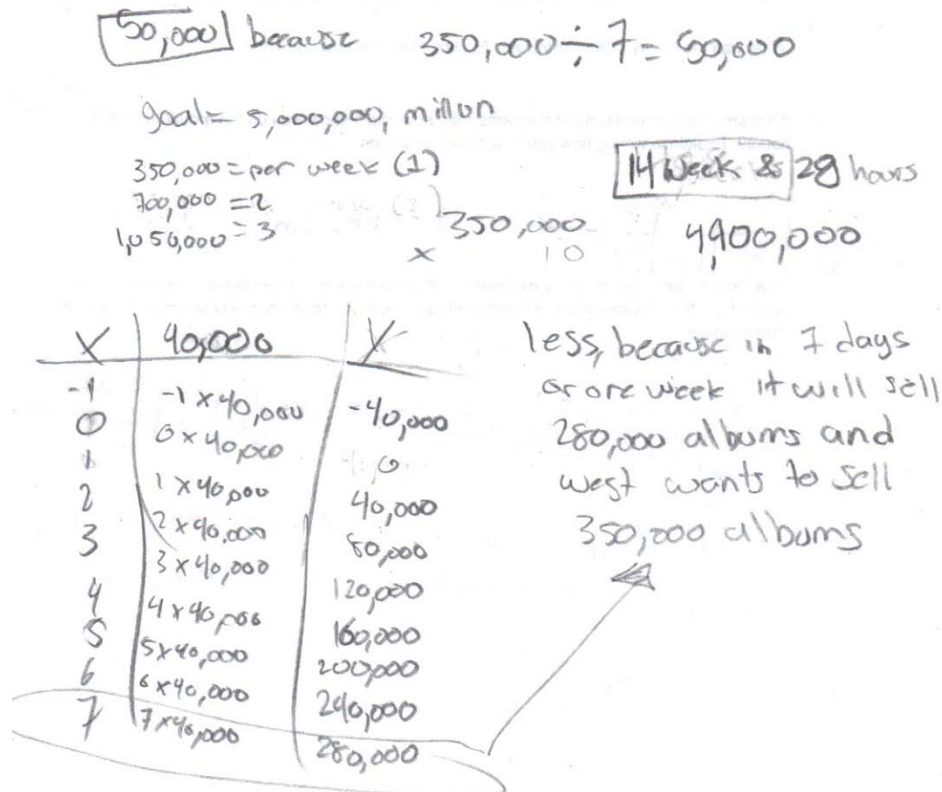 50,000 because 350,000 ÷ 7 = 50,000
goal = 5,000,000, millon
350,000 = per week (1)
700,000 = 2
1,050,000 = 3
350,000
x 10
14 week & 28 hours
4,900,000
X 40,000 Y
-1 -1 x 40,000 -40,000
0 0 x 40,000 0
1 1 x 40,000 40,000
2 2 x 40,000 80,000
3 3 x 40,000 120,000
4 4 x 40,000 160,000
5 5 x 40,000 200,000
6 6 x 40,000 240,000
7 7 x 40,000 280,000
less, because in 7 days
or one week it will sell
280,000 albums and
west wants to sell
350,000 albums